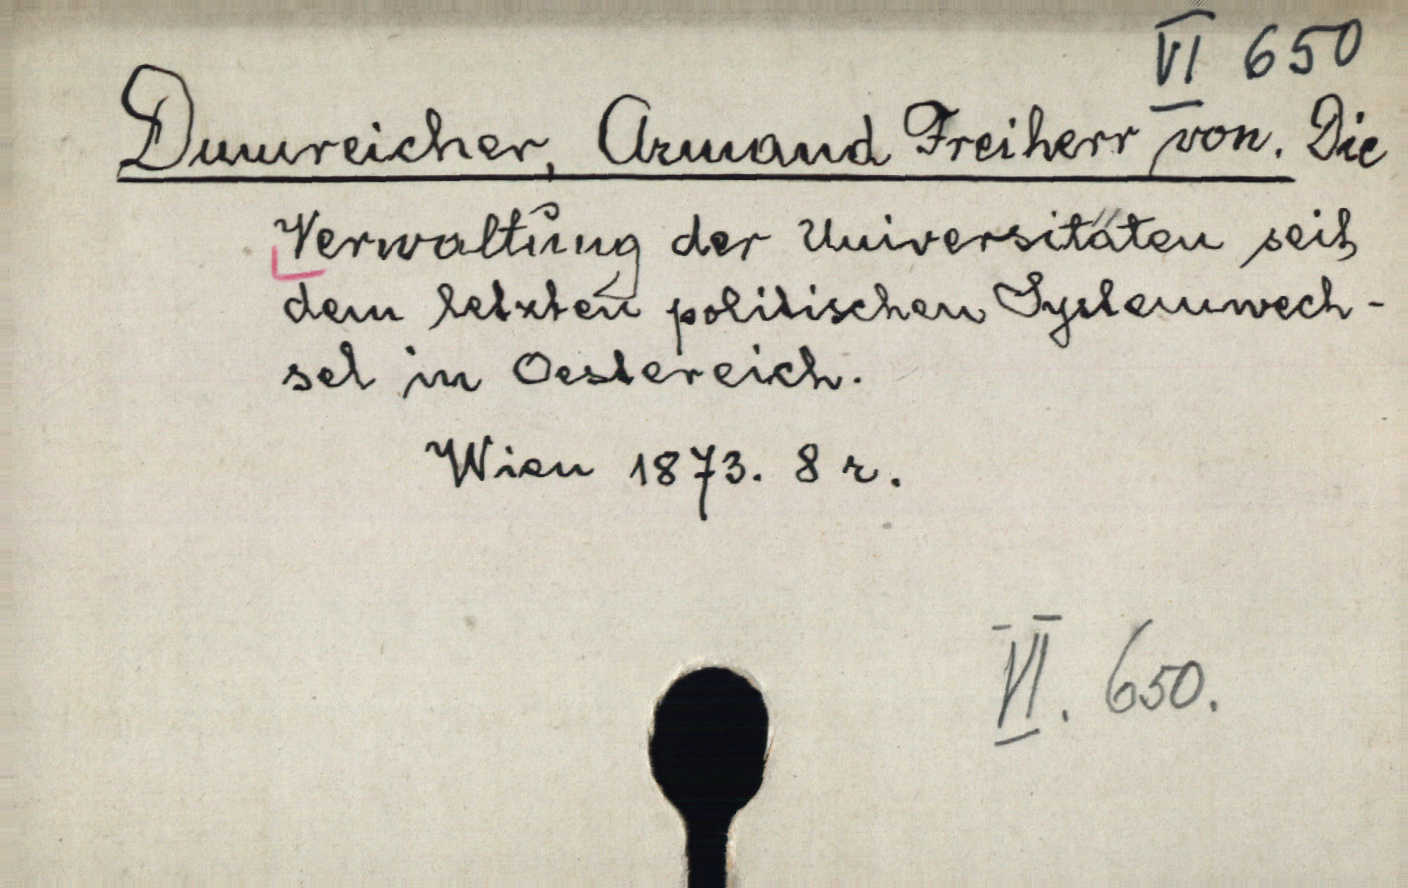 VI 650
Dumreicher, Armand Freiherr von. Die
Verwaltung der Universitäten seit
dem letzten politischen Systemwech-
sel in Oestereich.
Wien 1873. 8 r.
VI. 650.